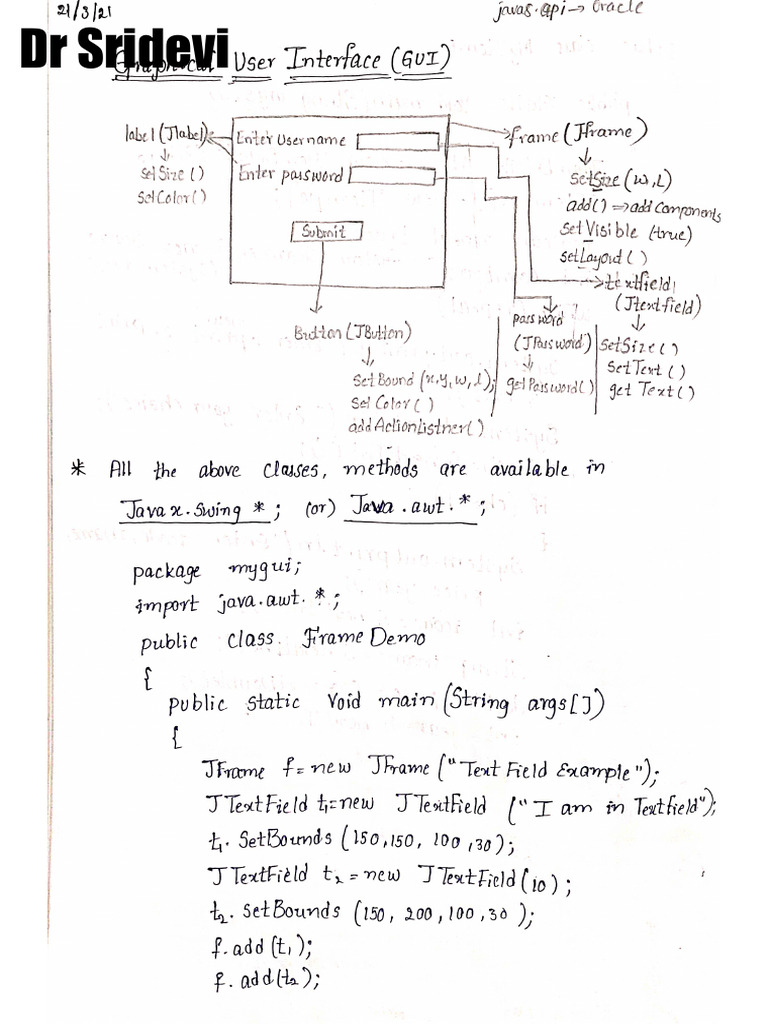 21/3/21
javas.api → Oracle
Dr Sridevi
Graphical User Interface (GUI)
label (Jlabel)
setSize ()
setColor ()
Enter Username
Enter password
Submit
frame (Jframe)
setSize (w,L)
add() ⇒ add Components
setVisible (true)
setLayout ()
textfield
(Jtextfield)
setSize ()
setText ()
get Text ()
password
(JPassword)
getPassword()
Button (JButton)
setBound (x,y,w,l);
setColor ()
addActionListner()
* All the above classes, methods are available in
Javax.swing *; (or) Java.awt.*;
package mygui;
import java.awt.*;
public class FrameDemo
{
public static void main (String args[])
{
JFrame f= new JFrame ("Text Field Example");
JTextField t1=new JTextField ("I am in Textfield");
t1. SetBounds (150,150, 100,30);
JTextField t2 = new JTextField(10);
t2. setBounds (150, 200,100,30);
f.add (t1);
f.add(t2);